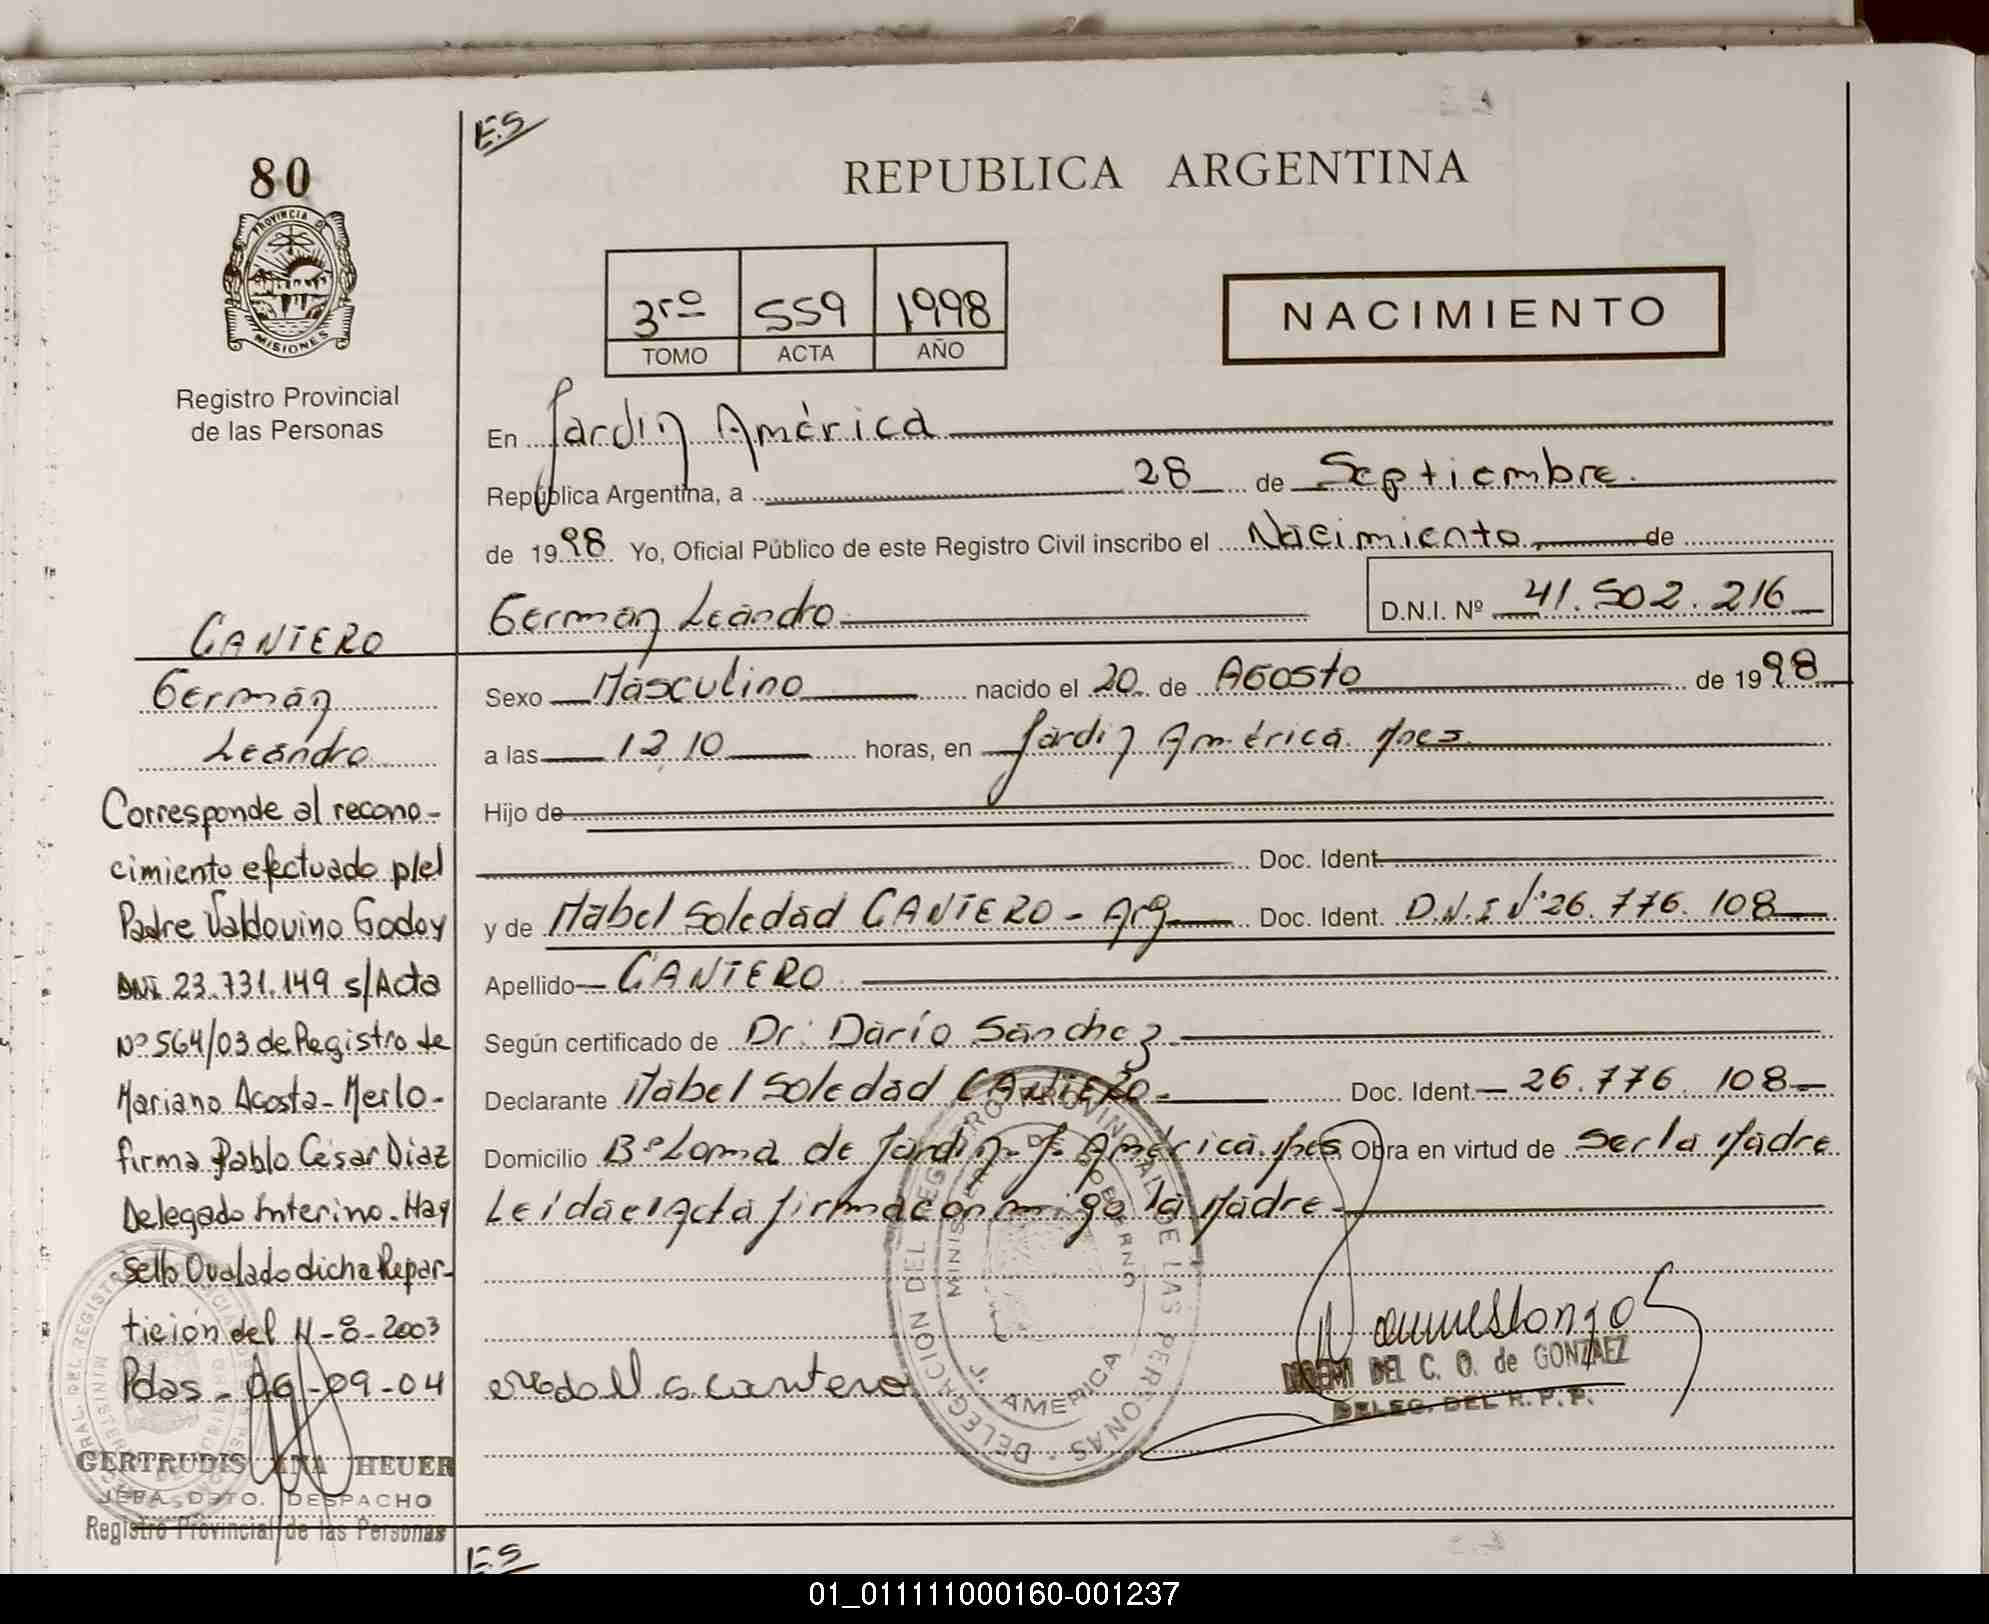 ES
80
REPUBLICA ARGENTINA
PROVINCIA DE
MISIONES
Registro Provincial
de las Personas
3ro 559 1998
TOMO ACTA AÑO
NACIMIENTO
En Jardín América
República Argentina, a 28 de Septiembre.
de 1998 Yo, Oficial Público de este Registro Civil inscribo el Nacimiento de
Germán Leandro D.N.I. Nº 41.502.216
Sexo Masculino nacido el 20 de Agosto de 1998
a las 12,10 horas, en Jardín América. Mnes.
Hijo de
Doc. Ident
y de Mabel Soledad CANTERO - Arg Doc. Ident. D.N.I Nº 26.776.108
Apellido CANTERO
Según certificado de Dr. Darío Sánchez
Declarante Mabel Soledad CANTERO - Doc. Ident. 26.776.108
Domicilio Bº Loma de Jardín - J. América. Mnes Obra en virtud de ser la Madre
Leída el Acta firma conmigo la Madre
CANTERO
Germán
Leandro
Corresponde al recono-
cimiento efectuado p/el
Padre Valdovino Godoy
DNI 23.731.149 s/Acta
Nº 564/03 de Registro de
Mariano Acosta - Merlo -
firma Pablo César Diaz
Delegado Interino. Hay
Sello Ovalado dicha Repar-
tición del 11-8-2003
Pdas - 09-04
GERTRUDIS ANA HEUER
JEFA DPTO. DESPACHO
Registro Provincial de las Personas
DELEGACION DEL REGISTRO PROVINCIAL DE LAS PERSONAS
MINISTERIO DE GOBIERNO
J. AMERICA
cantero
NOEMI DEL C. O. de GONZALEZ
DELEG. DEL R. P. P.
ES
01_011111000160-001237